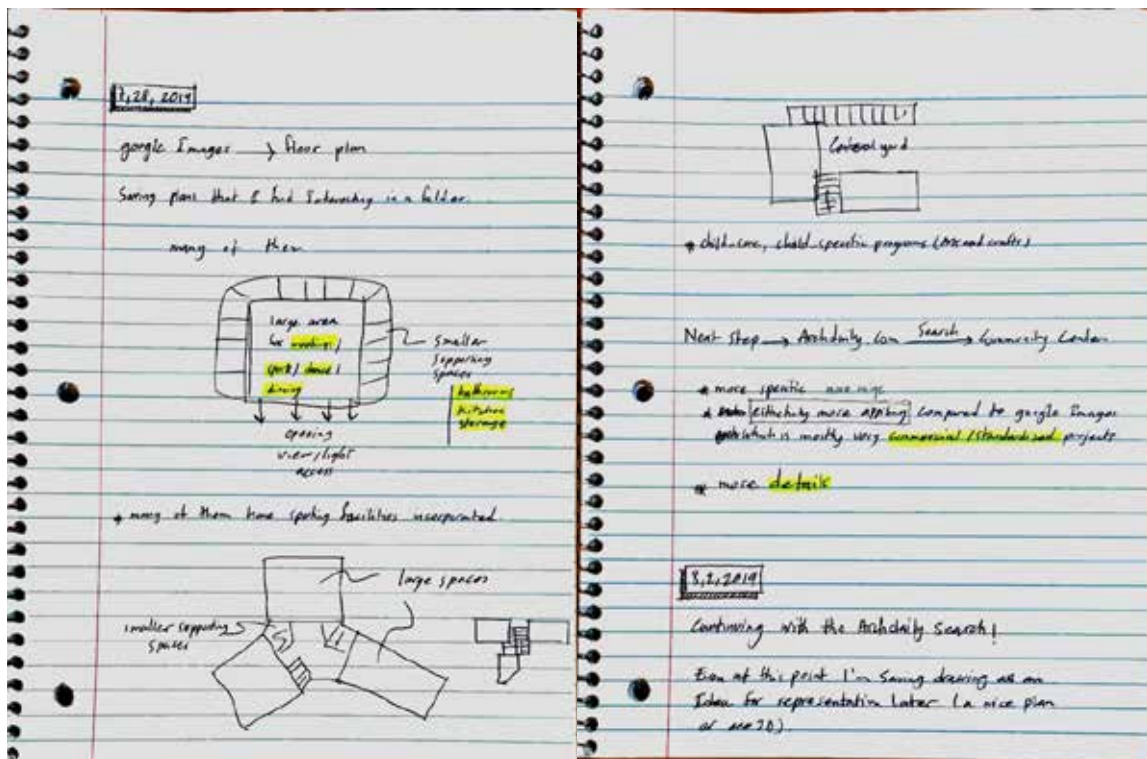 28, 2019
google Images → floor plan
Saving plans that I find Interesting in a folder.
many of them
large area
for meetings/
sport/ dance/
dining
smaller
supporting
spaces
bathrooms
kitchen
storage
opening
view/light
access
* many of them have sporting facilities incorporated
large spaces
smaller supporting
spaces
Central yard
* child-care, child-specific programs (Arts and crafts)
Next Step → Archdaily.com Search → Community Center
* more specific
more appling compared to google Images
which is mostly very commercial/standardized projects
* more details
8,2,2019
Continuing with the Archdaily Search!
Even at this point I'm Saving drawing as an
Idea for representation Later (a nice plan
or